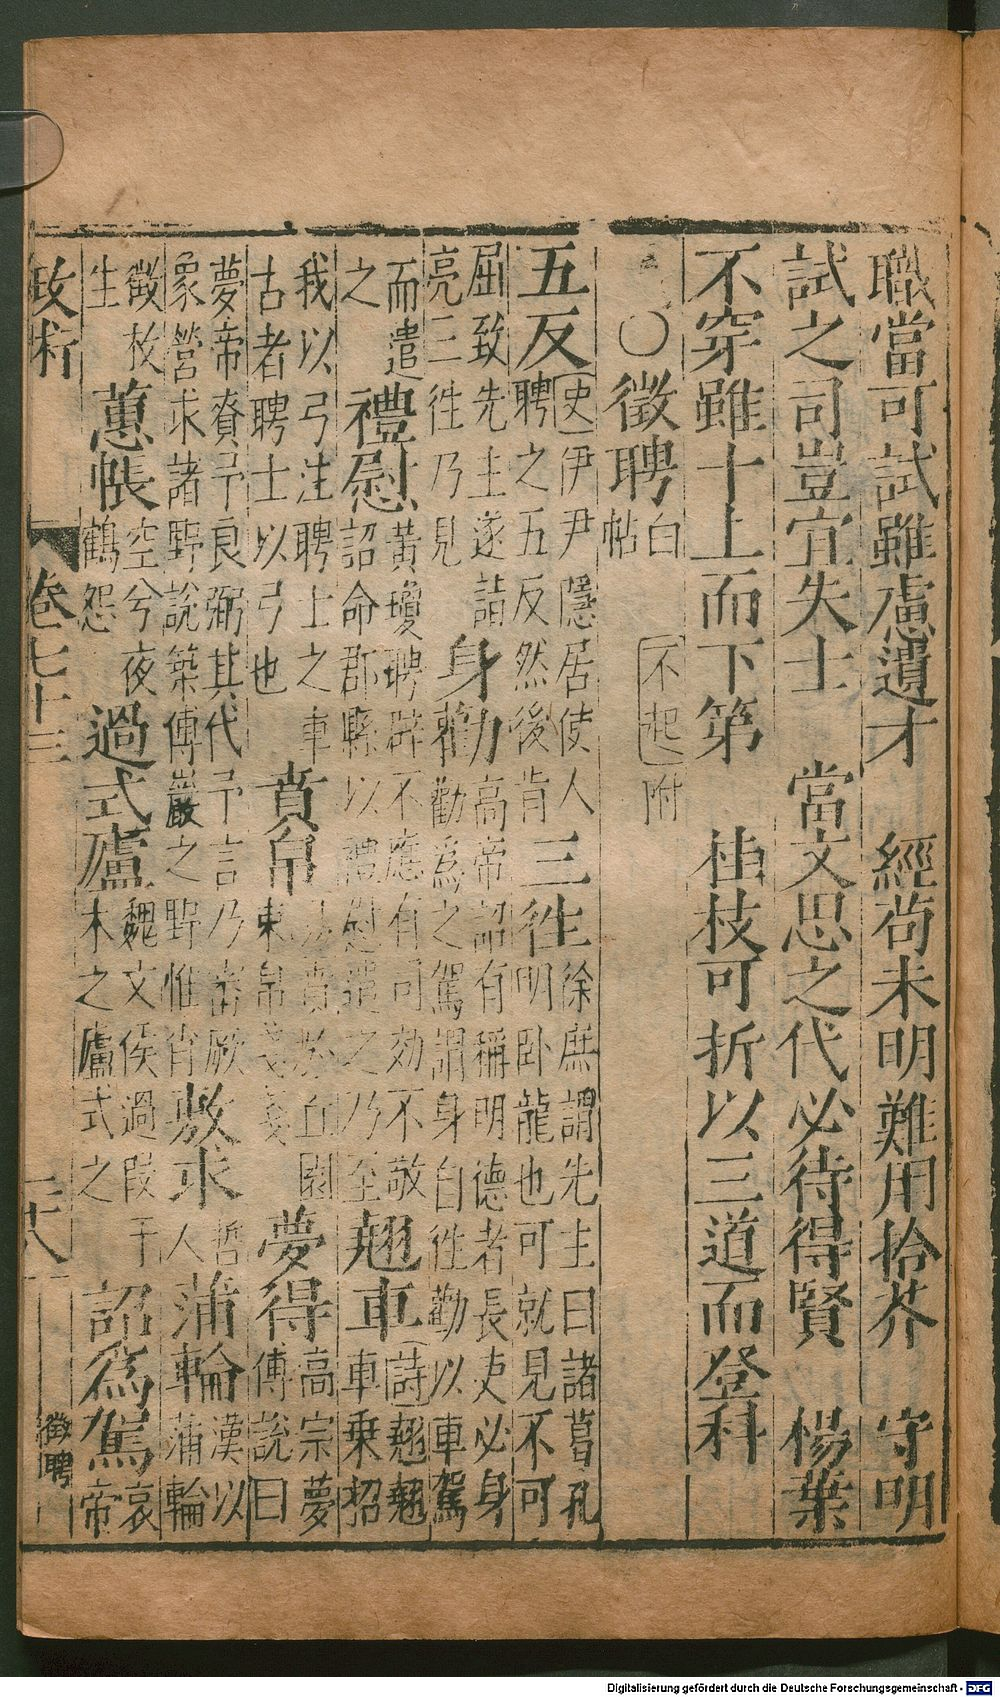 職當可試雖慮遺才　經尚未明難用拾芥　守明
試之司豈宜失士　當文思之代必待得賢　楊葉
不穿雖十上而下第　桂枝可折以三道而登科
〇徵聘白帖　不起附
五反史伊尹隱居使人聘之五反然後肯三徃徐庶謂先主曰諸葛孔明卧龍也可就見不可
屈致先主遂詣亮三徃乃見身勸高帝詔有稱明德者長吏必身勸為之駕謂身自徃勸以車駕
而遣之禮慰黃瓊聘辟不應有司劾不敬詔命郡縣以禮慰遣之乃至翹車詩翹翹車乗招
我以弓注聘士之車古者聘士以弓也賁帛賁於丘園束帛戔戔夢得高宗夢傅說曰
夢帝賚予良弼其代予言乃審厥象營求諸野說築傅巖之野惟肖敷求哲人蒲輪漢以蒲輪
徵枚生蕙帳空兮夜鶴怨過式廬魏文侯過段干木之廬式之詔為駕哀帝
政術　卷七十三　二十八　徵聘
Digitalisierung gefördert durch die Deutsche Forschungsgemeinschaft - DFG